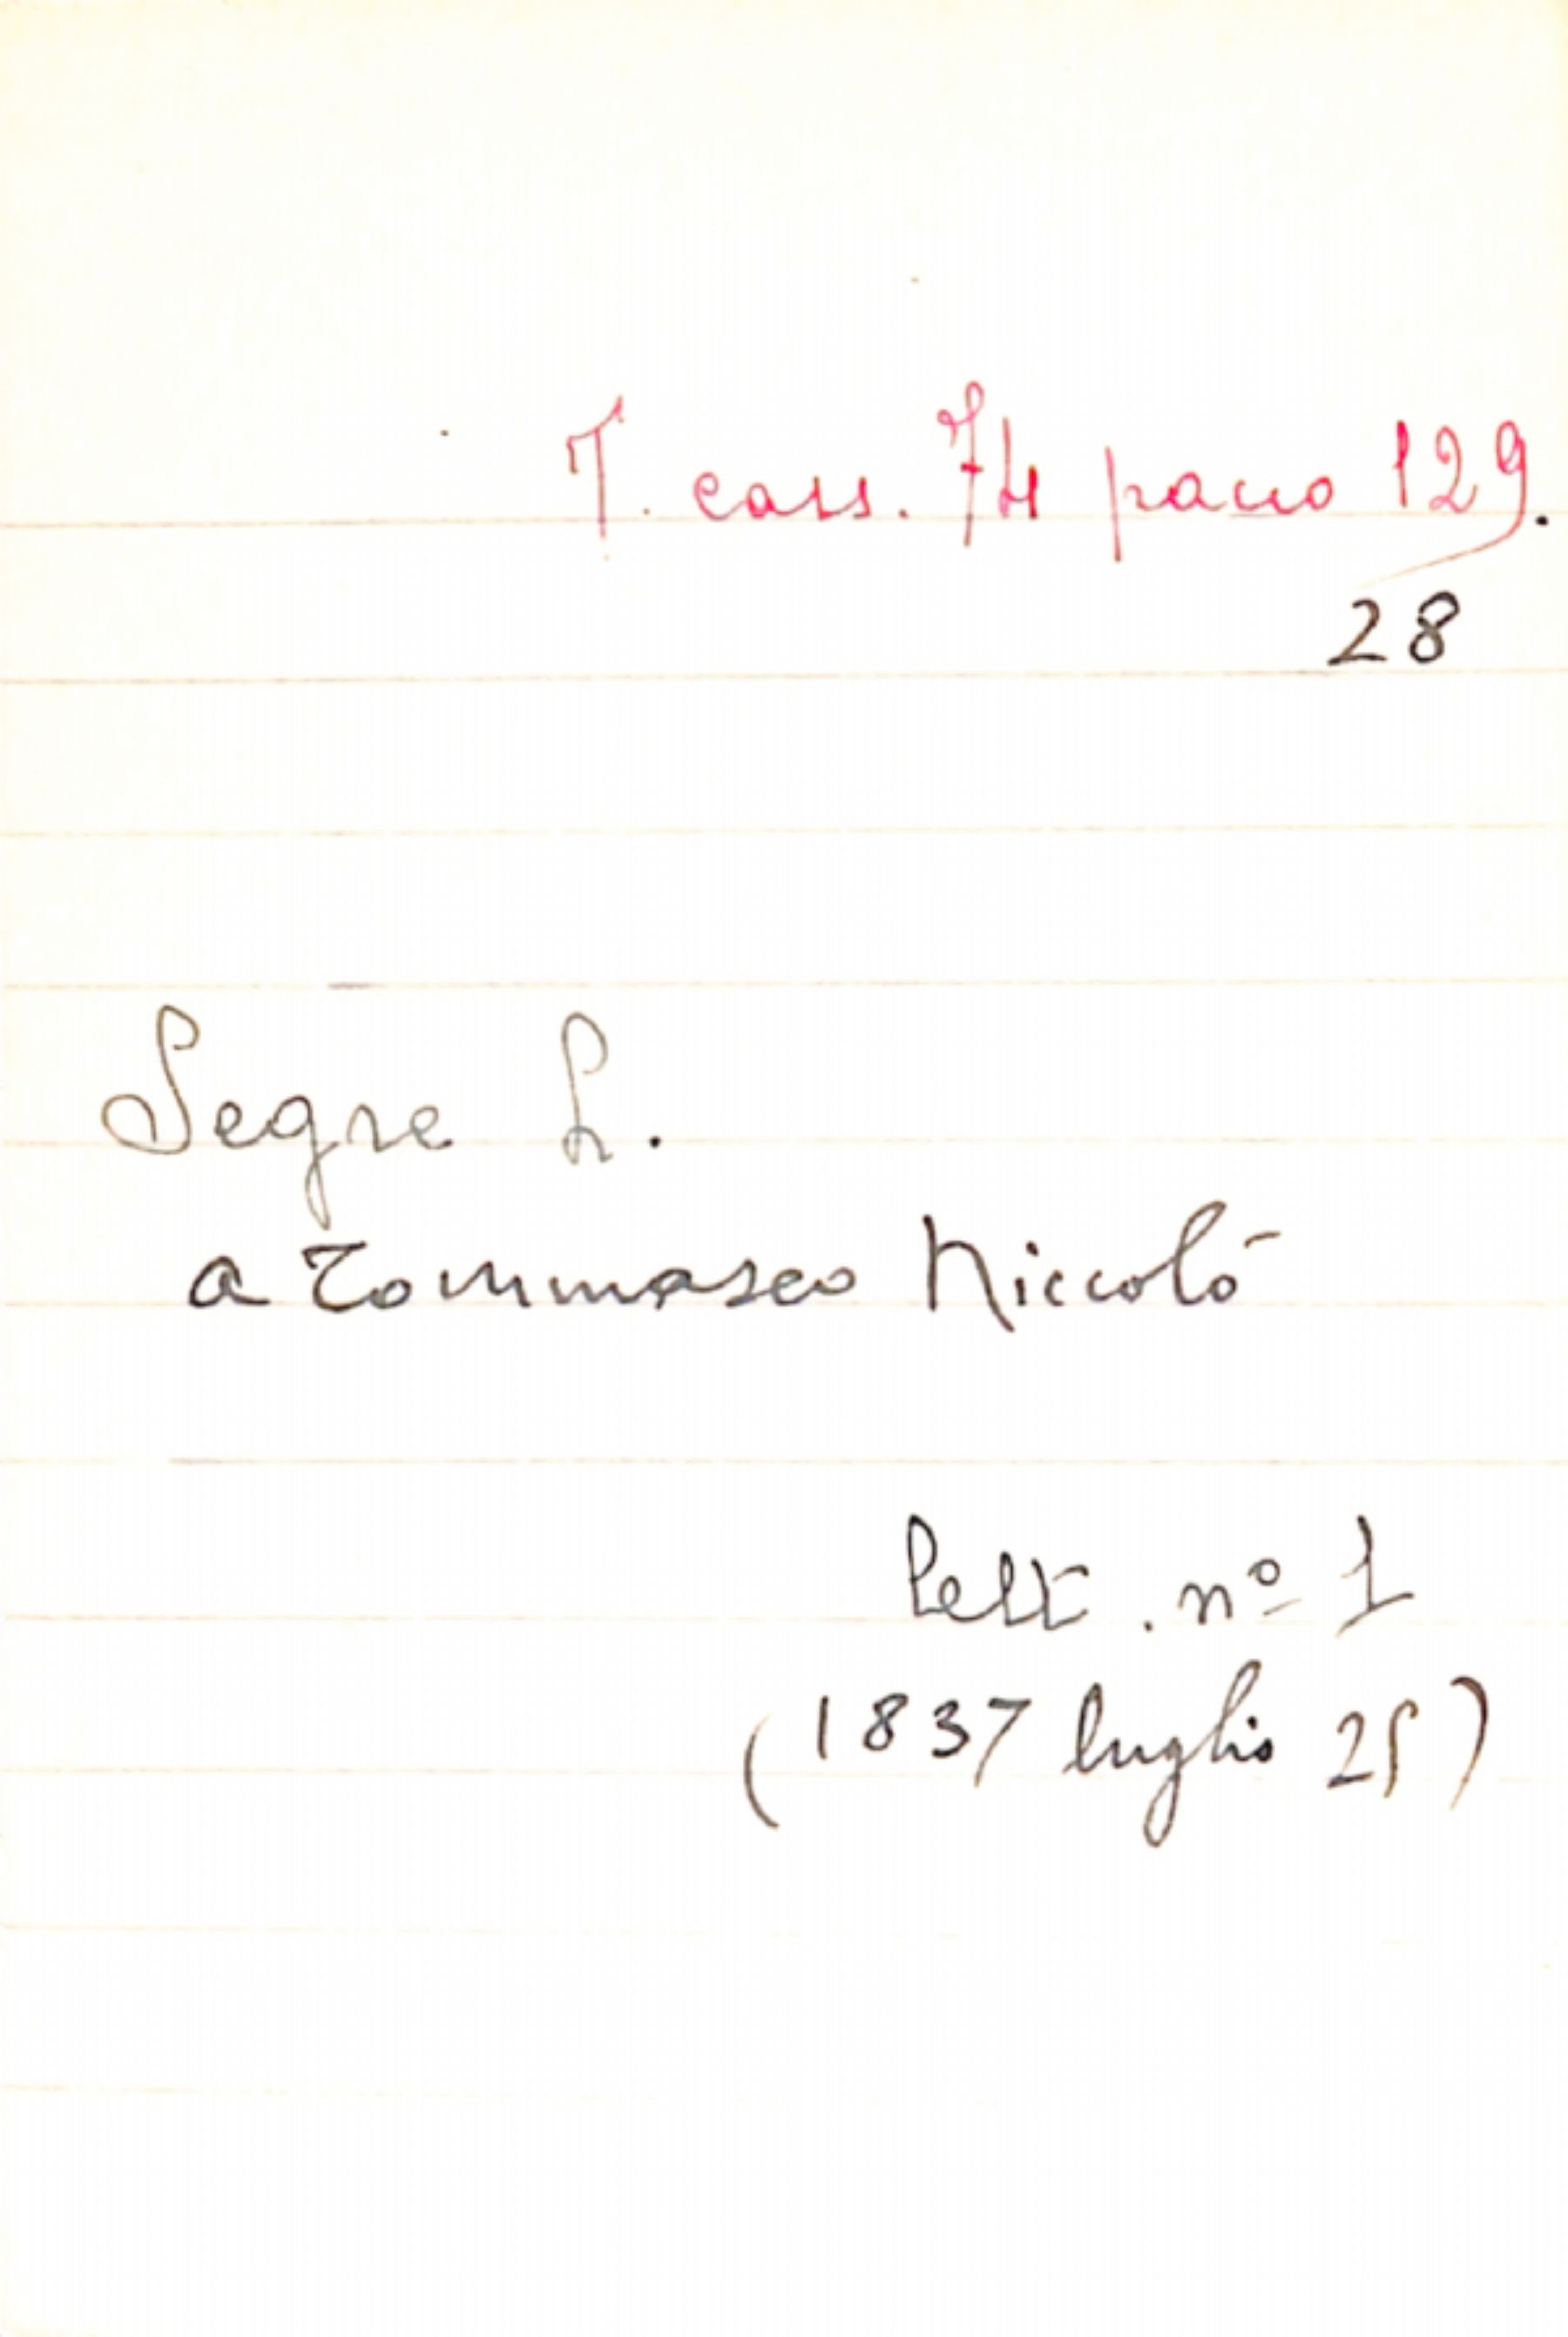 T. cass. 74 pacco 129.
28
Segre L.
a Tommaseo Niccolò
lett. nº 1
(1837 luglio 25)